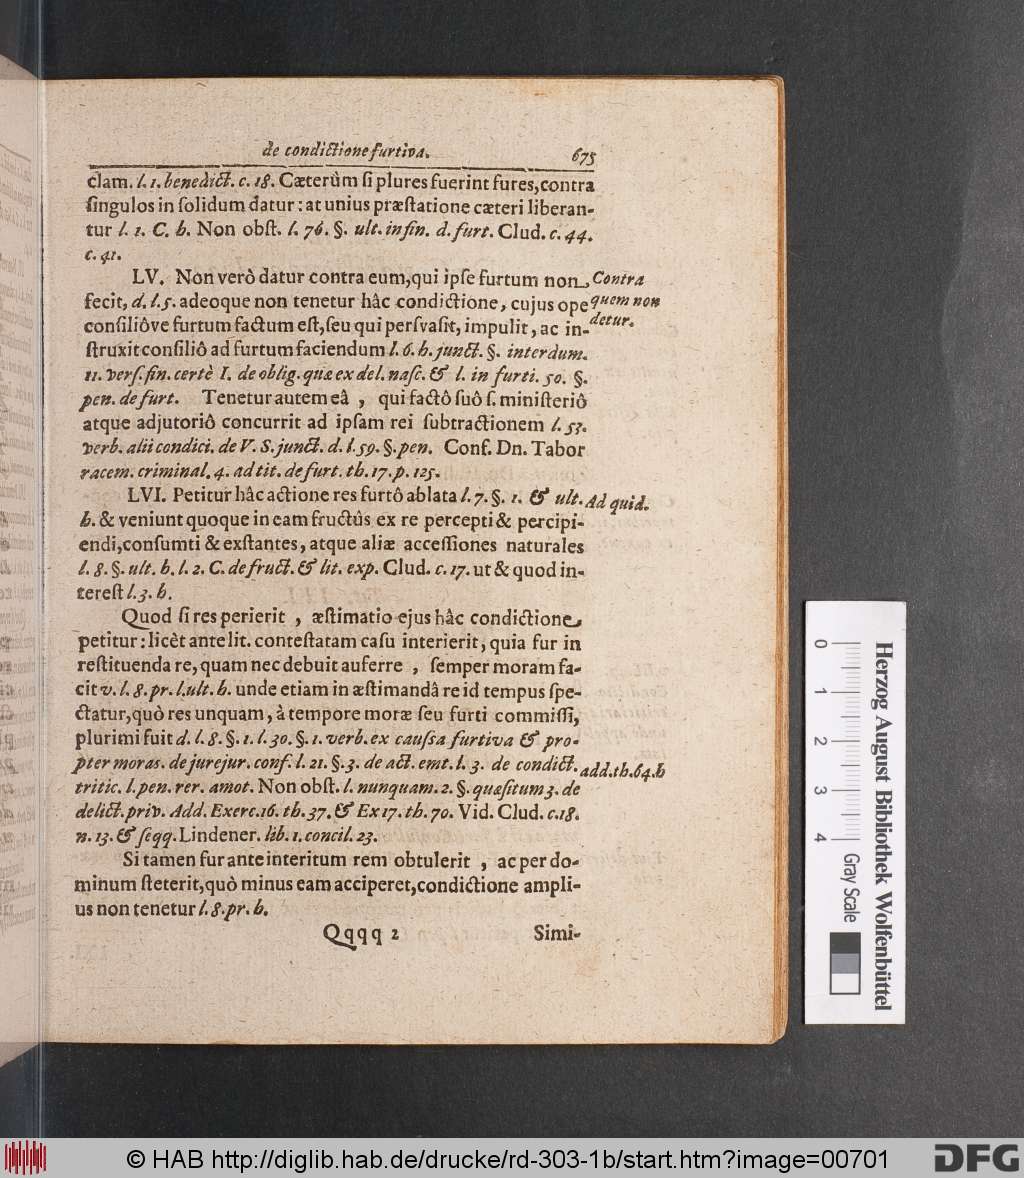 de condictione furtiva. 675
clam. l. 1. benedict. c. 18. Cæterùm ſi plures fuerint fures, contra
ſingulos in ſolidum datur: at unius præſtatione cæteri liberan-
tur l. 1. C. h. Non obſt. l. 76. §. ult. in fin. d. furt. Clud. c. 44.
c. 41.
LV. Non verò datur contra eum, qui ipſe furtum non
Contra
fecit, d. l. 5. adeoque non tenetur hâc condictione, cujus ope
quem non
conſiliôve furtum factum eſt, ſeu qui perſvaſit, impulit, ac in-
detur.
ſtruxit conſiliô ad furtum faciendum l. 6. h. junct. §. interdum.
11. verſ. fin. certè I. de oblig. quæ ex del. naſc. & l. in furti. 50. §.
pen. de furt. Tenetur autem eâ, qui factô ſuô ſ. miniſteriô
atque adjutoriô concurrit ad ipſam rei ſubtractionem l. 53.
verb. alii condici. de V. S. junct. d. l. 59. §. pen. Conf. Dn. Tabor
racem. criminal. 4. ad tit. de furt. th. 17. p. 125.
LVI. Petitur hâc actione res furtô ablata l. 7. §. 1. & ult.
Ad quid.
h. & veniunt quoque in eam fructûs ex re percepti & percipi-
endi, conſumti & exſtantes, atque aliæ acceſſiones naturales
l. 8. §. ult. h. l. 2. C. de fruct. & lit. exp. Clud. c. 17. ut & quod in-
tereſt l. 3. h.
Quod ſi res perierit, æſtimatio ejus hâc condictione
petitur: licèt ante lit. conteſtatam caſu interierit, quia fur in
reſtituenda re, quam nec debuit auferre, ſemper moram fa-
cit v. l. 8. pr. l. ult. h. unde etiam in æſtimandâ re id tempus ſpe-
ctatur, quò res unquam, à tempore moræ ſeu furti commiſſi,
plurimi fuit d. l. 8. §. 1. l. 30. §. 1. verb. ex cauſsa furtiva & pro-
pter moras. de jurejur. conf. l. 21. §. 3. de act. emt. l. 3. de condict.
add. th. 64. h
tritic. l. pen. rer. amot. Non obſt. l. nunquam. 2. §. quæſitum 3. de
delict. priv. Add. Exerc. 16. th. 37. & Ex 17. th. 70. Vid. Clud. c. 18.
n. 13. & ſeqq. Lindener. lib. 1. concil. 23.
Si tamen fur ante interitum rem obtulerit, ac per do-
minum ſteterit, quò minus eam acciperet, condictione ampli-
us non tenetur l. 8. pr. h.
Qqqq 2 Simi-
0 1 2 3 4
Herzog August Bibliothek Wolfenbüttel
Gray Scale
© HAB http://diglib.hab.de/drucke/rd-303-1b/start.htm?image=00701
DFG